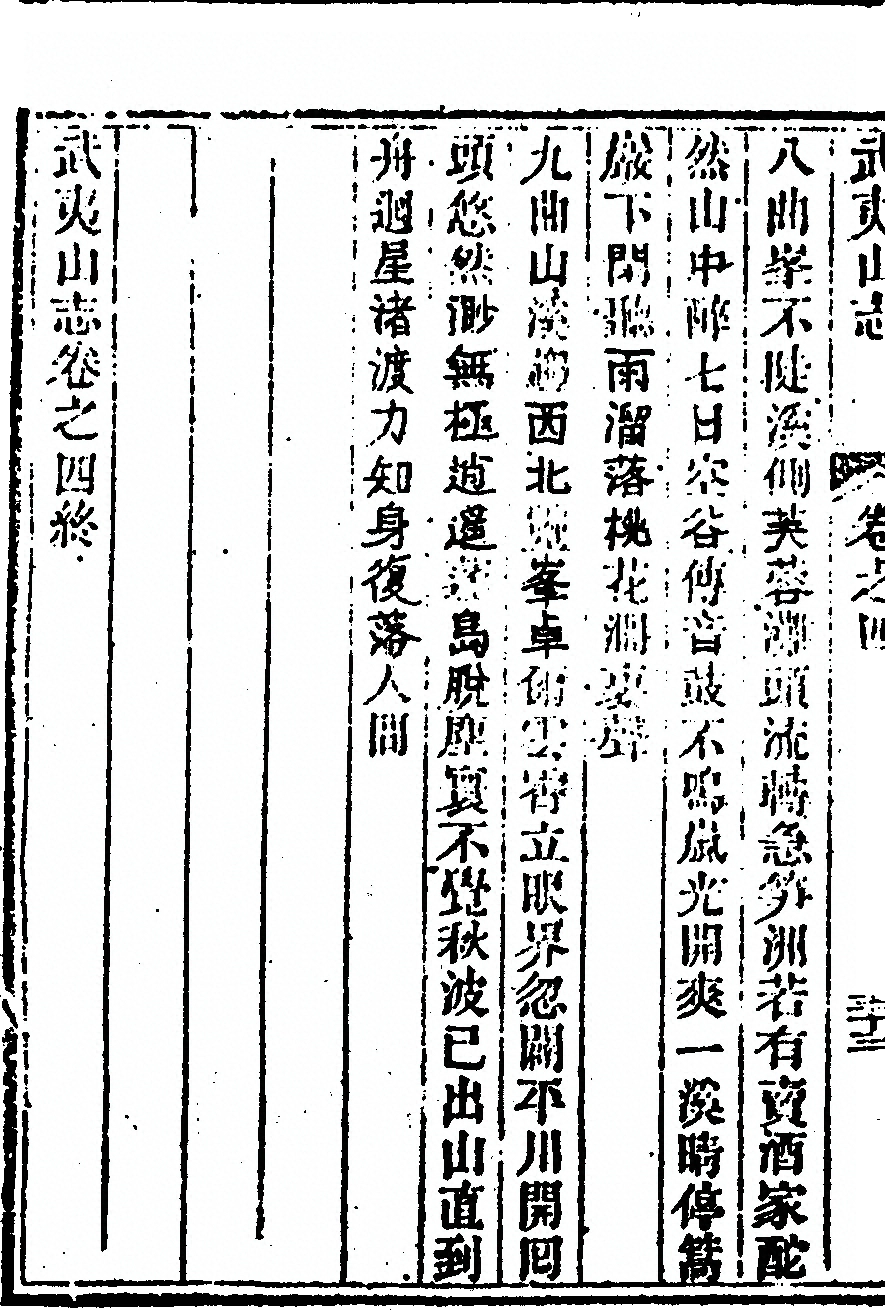 武夷山志 卷之四 三十三
八曲峯不陡溪側芙蓉灘頭流轉急笄洲若有賣酒家酡
然山中醉七日空谷傳音鼓不鳴嵐光開爽一溪晴停篙
巖下閒聽雨溜落桃花澗裏聲
九曲山溪西北峯卓倚雲霄立眼界忽平川開囘
頭悠然渺無極逍遥島脫塵寰不覺秋波已出山直到
舟迴星渚渡力知身復落人間
武夷山志卷之四終